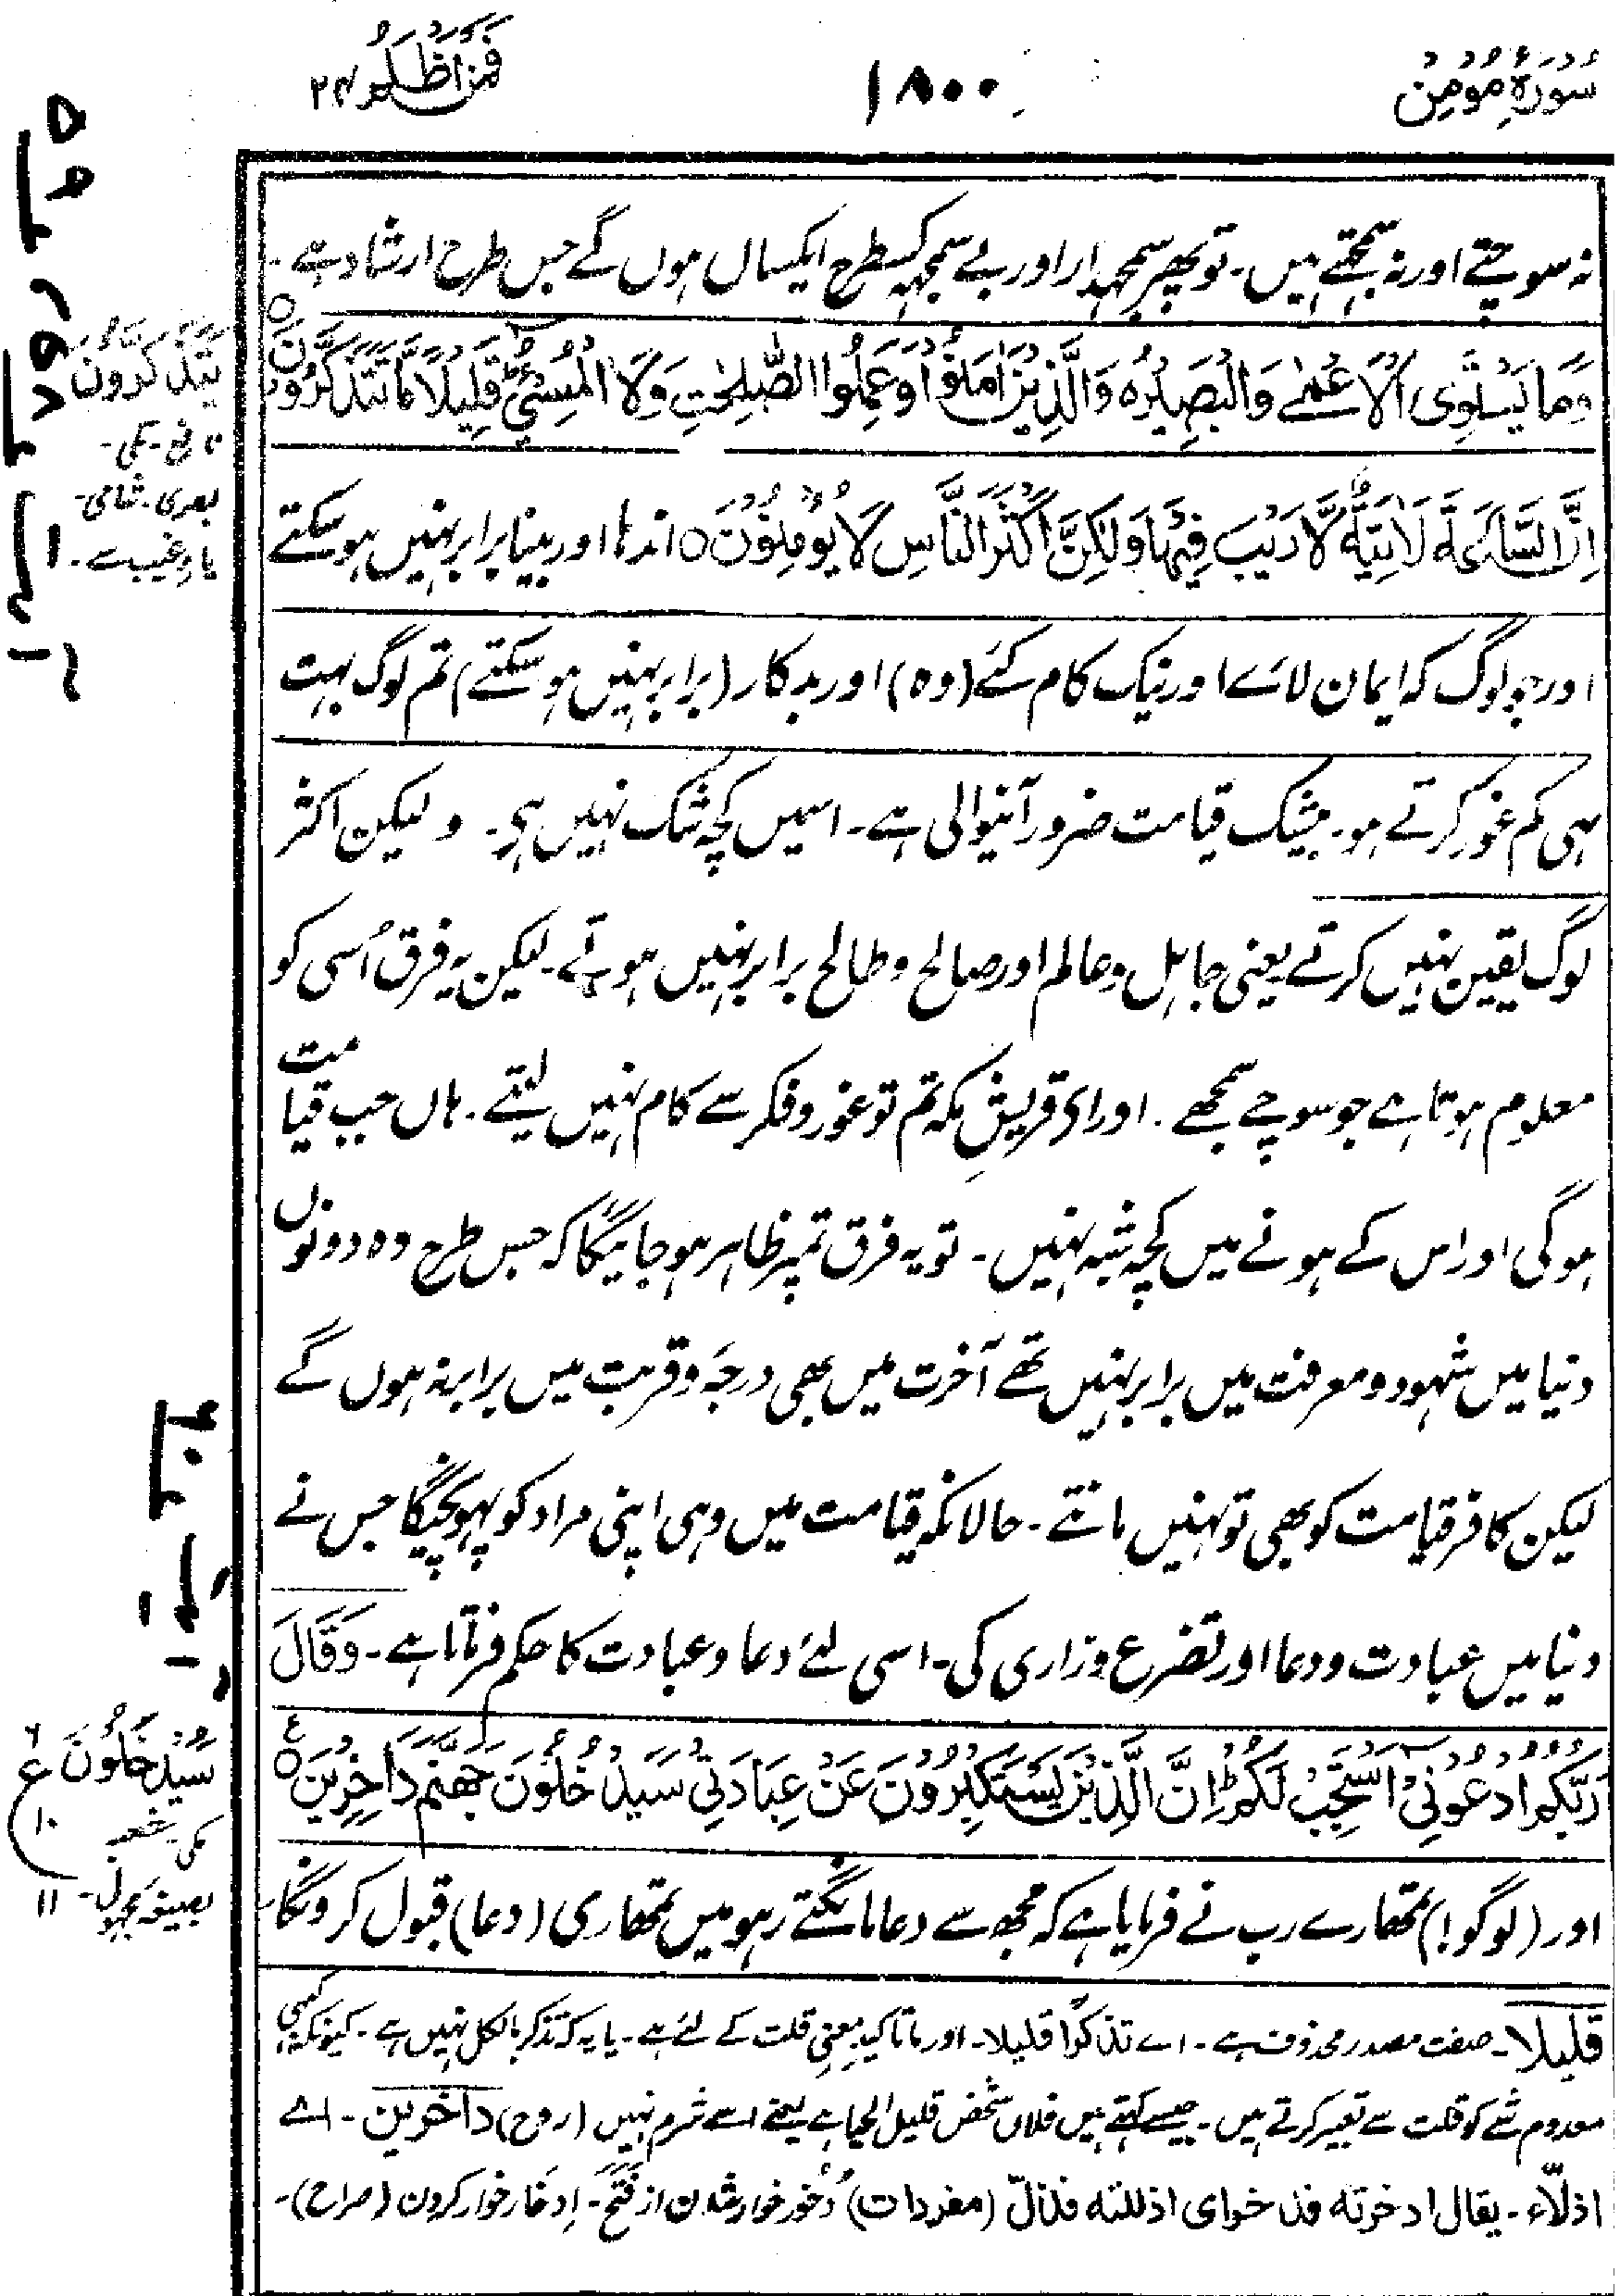 سُوْرَۃُ مُؤْمِنْ
۱۸۰۰
فَمَنْ اَظْلَمُ ۲۴
نہ سوچتے اور نہ سمجھتے ہیں۔ تو پھر سمجھدار اور بے سمجھ کسطرح ایکساں ہوں گے جس طرح ارشاد ہے۔
وَمَا یَسْتَوِی الْاَعْمٰی وَالْبَصِیْرُ ہ وَالَّذِیْنَ اٰمَنُوْا وَعَمِلُوا الصّٰلِحٰتِ وَلَا الْمُسِیْٓءُ قَلِیْلًا مَّا تَتَذَکَّرُوْنَ ○
اِنَّ السَّاعَۃَ لَاٰتِیَۃٌ لَّا رَیْبَ فِیْہَا وَلٰکِنَّ اَکْثَرَ النَّاسِ لَا یُؤْمِنُوْنَ ○ اندھا اور بینا برابر نہیں ہو سکتے
اور جو لوگ کہ ایمان لائے اور نیک کام کئے (وہ) اور بدکار (برابر نہیں ہو سکتے) تم لوگ بہت
ہی کم غور کرتے ہو۔ بیشک قیامت ضرور آنیوالی ہے۔ اسمیں کچھ شک نہیں ہی۔ ولیکن اکثر
لوگ یقین نہیں کرتے یعنی جاہل و عالم اور صالح و طالح برابر نہیں ہوتے۔ لیکن یہ فرق اُسی کو
معلوم ہوتا ہے جو سوچے سمجھے۔ اور ای قریشِ مکہ تم تو غور و فکر سے کام نہیں لیتے۔ ہاں جب قیامت
ہوگی اور اس کے ہونے میں کچھ شبہ نہیں۔ تو یہ فرق تمپر ظاہر ہو جائیگا کہ جس طرح وہ دونوں
دنیا میں شہود و معرفت میں برابر نہیں تھے آخرت میں بھی درجہ و قربت میں برابر نہ ہوں گے
لیکن کافر قیامت کو بھی تو نہیں مانتے۔ حالانکہ قیامت میں وہی اپنی مراد کو پہونچیگا جس نے
دنیا میں عبادت و دعا اور تضرع و زاری کی۔ اسی لئے دعا و عبادت کا حکم فرماتا ہے۔ وَقَالَ
رَبُّکُمُ ادْعُوْنِیْٓ اَسْتَجِبْ لَکُمْ ؕ اِنَّ الَّذِیْنَ یَسْتَکْبِرُوْنَ عَنْ عِبَادَتِیْ سَیَدْخُلُوْنَ جَہَنَّمَ دَاخِرِیْنَ ○ ع
اور (لوگو!) تمھارے رب نے فرمایا ہے کہ مجھ سے دعا مانگتے رہو میں تمھاری (دعا) قبول کرونگا
قلیلا۔ صفت مصدر محذوف ہے۔ اے تذکرًا قلیلا۔ اور ما تاکید معنیِ قلت کے لئے ہے۔ یا یہ کہ تذکر بالکل نہیں ہے۔ کیونکہ کبھی
معدوم شے کو قلت سے تعبیر کرتے ہیں۔ جیسے کہتے ہیں فلاں شخص قلیل الحیا ہے یعنے اسے شرم نہیں (روح) داخرین۔ اے
اذلّاء۔ یقال ادخرتہ فدخر ای اذللتہ فذلّ (مفردات) دُخور خوار شدن از فَتَحَ۔ اِدخار خوار کردن (صراح)۔
یَتَذَکَّرُوْنَ
نافع۔ مکی۔
بصری۔ شامی۔
یاء غیب سے۔
سَیُدْخَلُوْنَ
مکی۔ شعبہ
بصیغہ مجہول۔ ۱۱
ع
۱۰